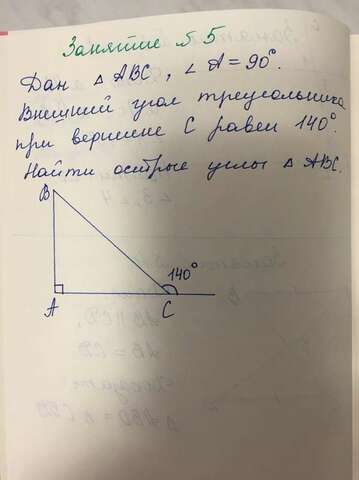 Занятие №5
Дан △ ABC, ∠A = 90°.
Внешний угол треугольника
при вершине C равен 140°.
Найти острые углы △ ABC.
B
140°
A
C